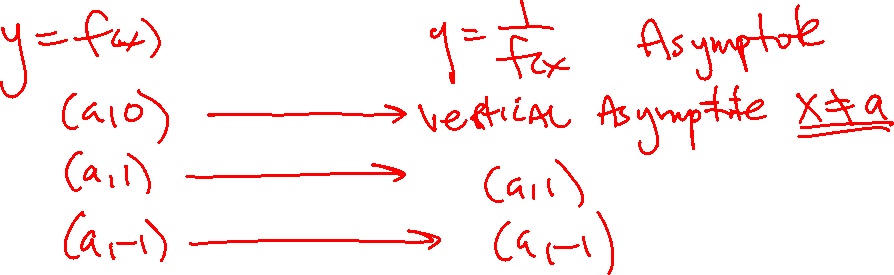 y = f(x) y = 1/f(x Asymptote
(a,0) → Vertical Asymptote x ≠ a
(a,1) → (a,1)
(a,-1) → (a,-1)